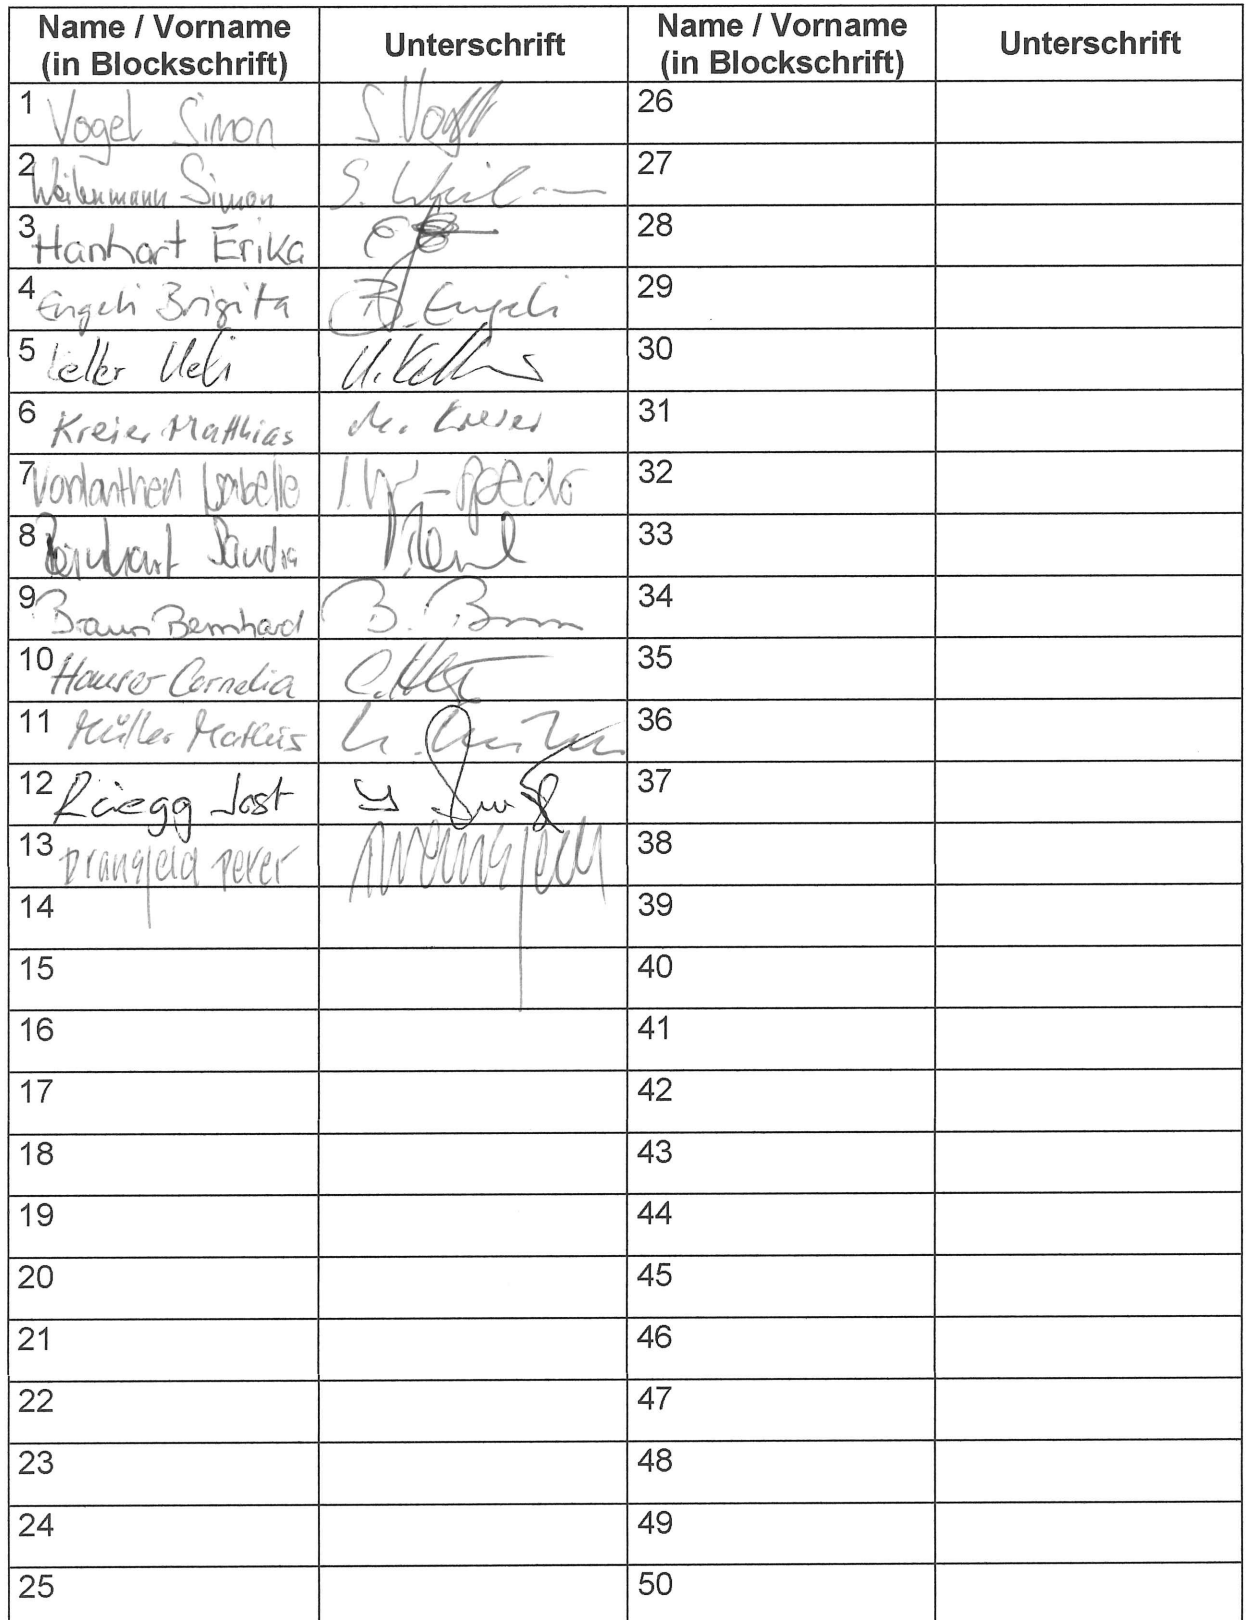 Name / Vorname (in Blockschrift) Unterschrift Name / Vorname (in Blockschrift) Unterschrift
1 Vogel Simon S. Vogel 26
2 Weilenmann Simon S. 27
3 Hanhart Erika 28
4 Engeli Brigita B. Engeli 29
5 Keller Ueli U. Keller 30
6 Kreier Matthias M. Kreier 31
7 Vonlanthen Isabelle 32
8 Reinhart Sandra 33
9 Braun Bernhard B. Braun 34
10 Hauser Cornelia 35
11 Müller Mathis 36
12 Rüegg Jost 37
13 Drangfeld Peter 38
14 39
15 40
16 41
17 42
18 43
19 44
20 45
21 46
22 47
23 48
24 49
25 50